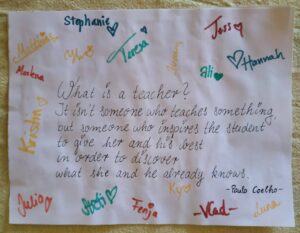 Stephanie
Jess
Teresa
Hannah
Ali
Kristin
What is a teacher?
It isn't someone who teaches something,
but someone who inspires the student
to give her and his best
in order to discover
what she and he already knows.
-Paulo Coelho-
Julia
Steffi
Fenja
-Vlad-
Luna